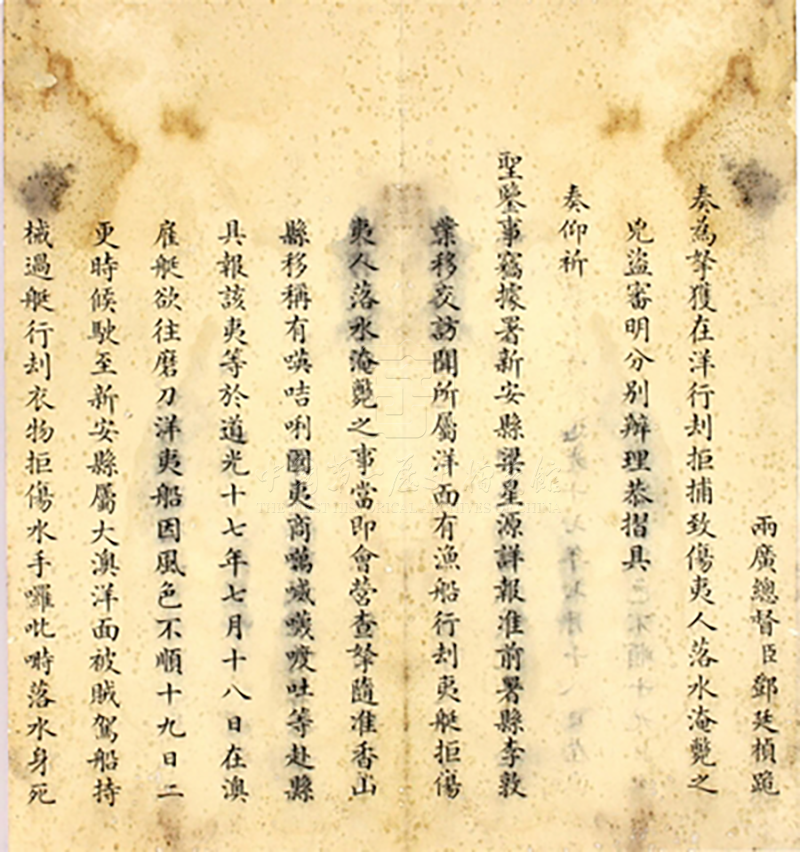 兩廣總督臣鄧廷楨跪
奏為拏獲在洋行刦拒捕致傷夷人落水淹斃之
兇盜審明分別辦理恭摺具
奏仰祈
聖鑒事竊據署新安縣梁星源詳報准前署縣李敦
業移交訪聞所屬洋面有漁船行刦夷艇拒傷
夷人落水淹斃之事當即會營查拏隨准香山
縣移稱有𠸄咭唎國夷商等赴縣
具報該夷等於道光十七年七月十八日在澳
雇艇欲往磨刀洋夷船因風色不順十九日二
更時候駛至新安縣屬大澳洋面被賊駕船持
械過艇行刦衣物拒傷水手囉吡時落水身死